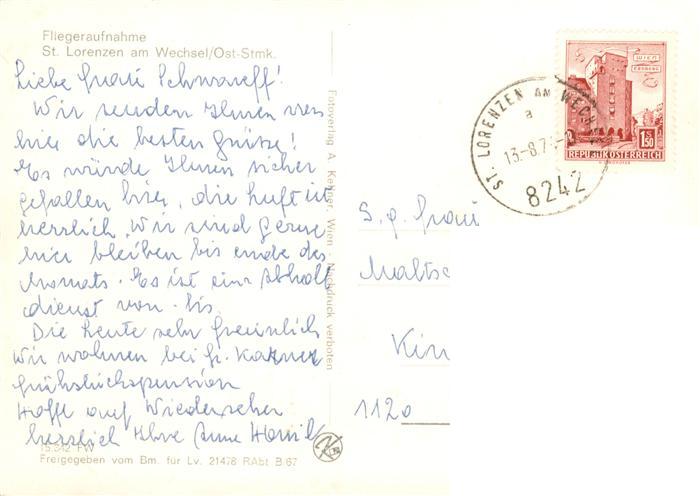 Fliegeraufnahme
St. Lorenzen am Wechsel/Ost-Stmk.
Liebe Frau
Wir senden Ihnen von
hier die besten Grüsse!
Es würde Ihnen sicher
gefallen hier, die Luft ist
herrlich. Wir sind gerne
hier bleiben bis ende des
Monats. Es ist ein Abholl
dienst von - bis
Die Leute sehr freundlich
wir wohnen bei Fr. Karner
Frühstückspension
Hoffe auf Wiedersehen
herzlich Ihre Anna
15.542 FW
Freigegeben vom Bm. für Lv. 21478 RAbt B/67
Fotoverlag A. Kellner, Wien - Nachdruck verboten
WIEN
ERDBERG
1.50
REPUBLIK ÖSTERREICH
ST. LORENZEN AM WECHSEL
a
13.-8.7
8242
S. g. Frau
Maltsc
Kin
1120